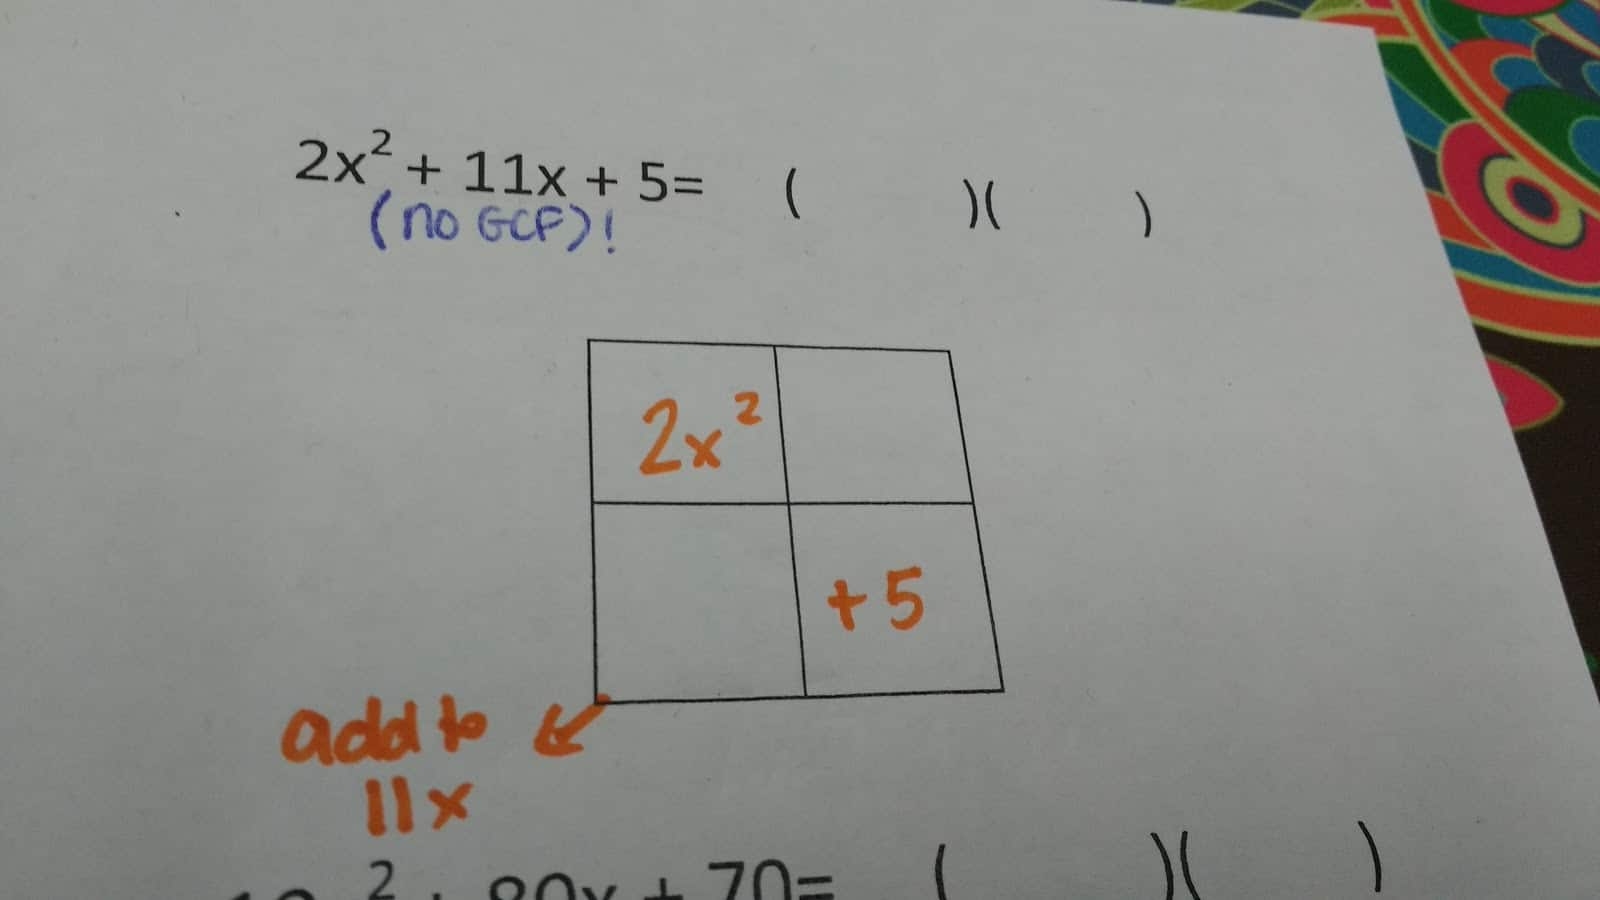 2x² + 11x + 5= ( )( )
(no GCF)!
2x²
+5
add to
11x
² + 80x + 70= ( )( )